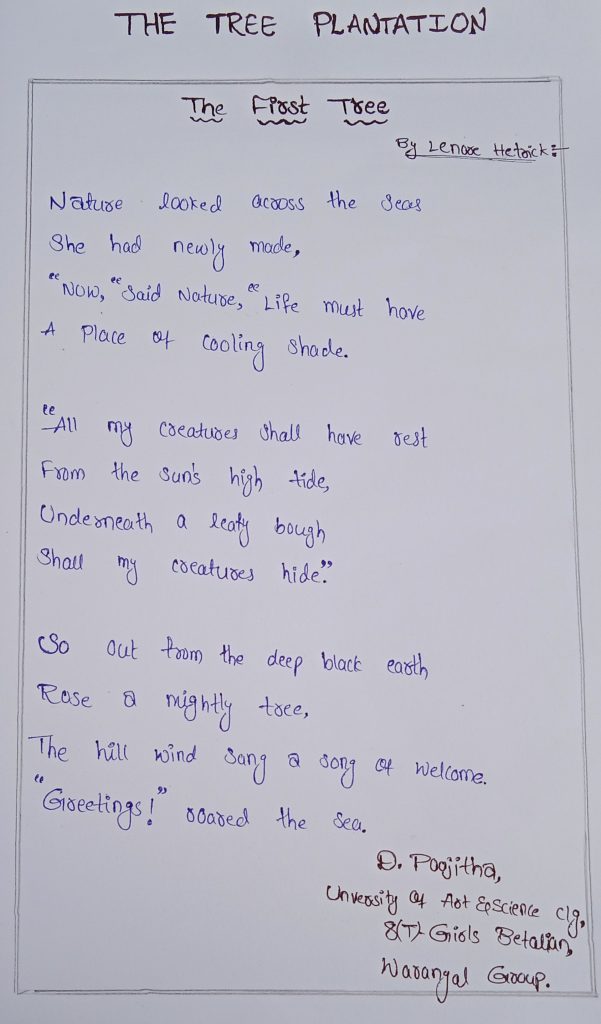 THE TREE PLANTATION
The First Tree
By Lenore Hetrick:-
Nature looked across the seas
She had newly made,
"Now, "Said Nature, "Life must have
A Place of cooling shade.
"All my creatures shall have rest
From the sun's high tide,
Underneath a leafy bough
Shall my creatures hide."
So out from the deep black earth
Rose a mightly tree,
The hill wind sang a song of welcome.
"Greetings!" roared the sea.
D. Poojitha,
Unversity of Art & Science clg,
8(T) Girls Betalian,
Warangal Group.